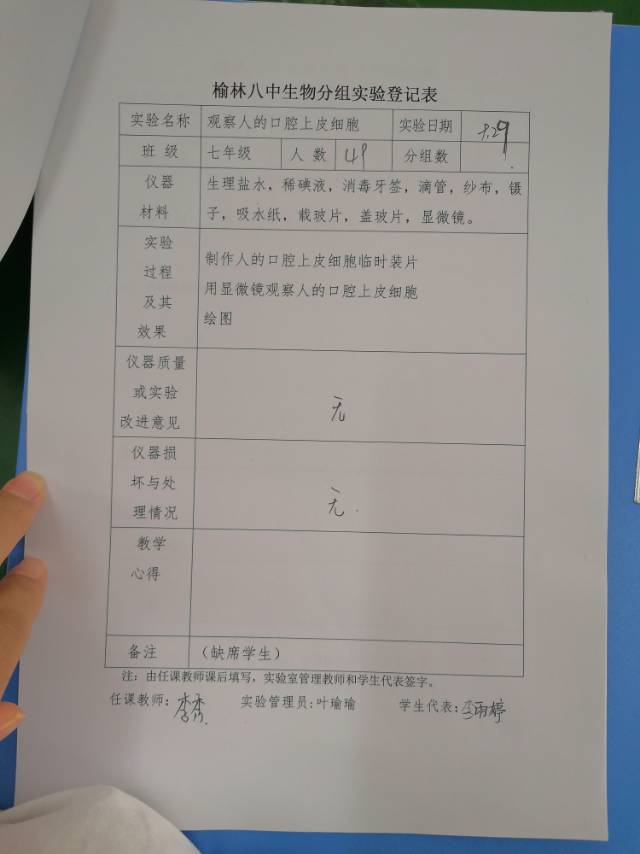 榆林八中生物分组实验登记表
实验名称 观察人的口腔上皮细胞 实验日期 9.29
班 级 七年级 人 数 49 分组数
仪器 生理盐水，稀碘液，消毒牙签，滴管，纱布，镊
材料 子，吸水纸，载玻片，盖玻片，显微镜。
实验
过程 制作人的口腔上皮细胞临时装片
及其 用显微镜观察人的口腔上皮细胞
效果 绘图
仪器质量
或实验
改进意见 无
仪器损
坏与处
理情况 无
教学
心得
备注 （缺席学生）
注：由任课教师课后填写，实验室管理教师和学生代表签字。
任课教师： 实验管理员：叶瑜瑜 学生代表：李雨婷